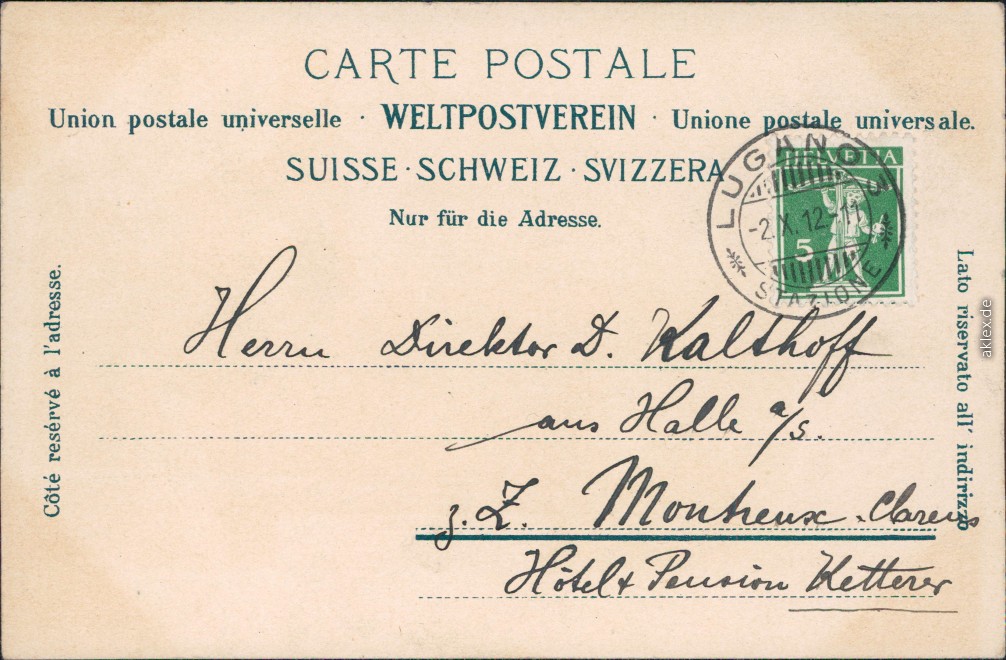 CARTE POSTALE
Union postale universelle · WELTPOSTVEREIN · Unione postale universale.
SUISSE · SCHWEIZ · SVIZZERA
Nur für die Adresse.
HELVETIA
5
LUGANO 3
-2.X.12.-11
STAZIONE
Côté resérvé à l'adresse.
Lato riservato all' indirizzo
Herrn Direktor D. Kalthoff
aus Halle a/S.
z. Z. Montreux. Clarens
Hôtel & Pension Ketterer
aklex.de